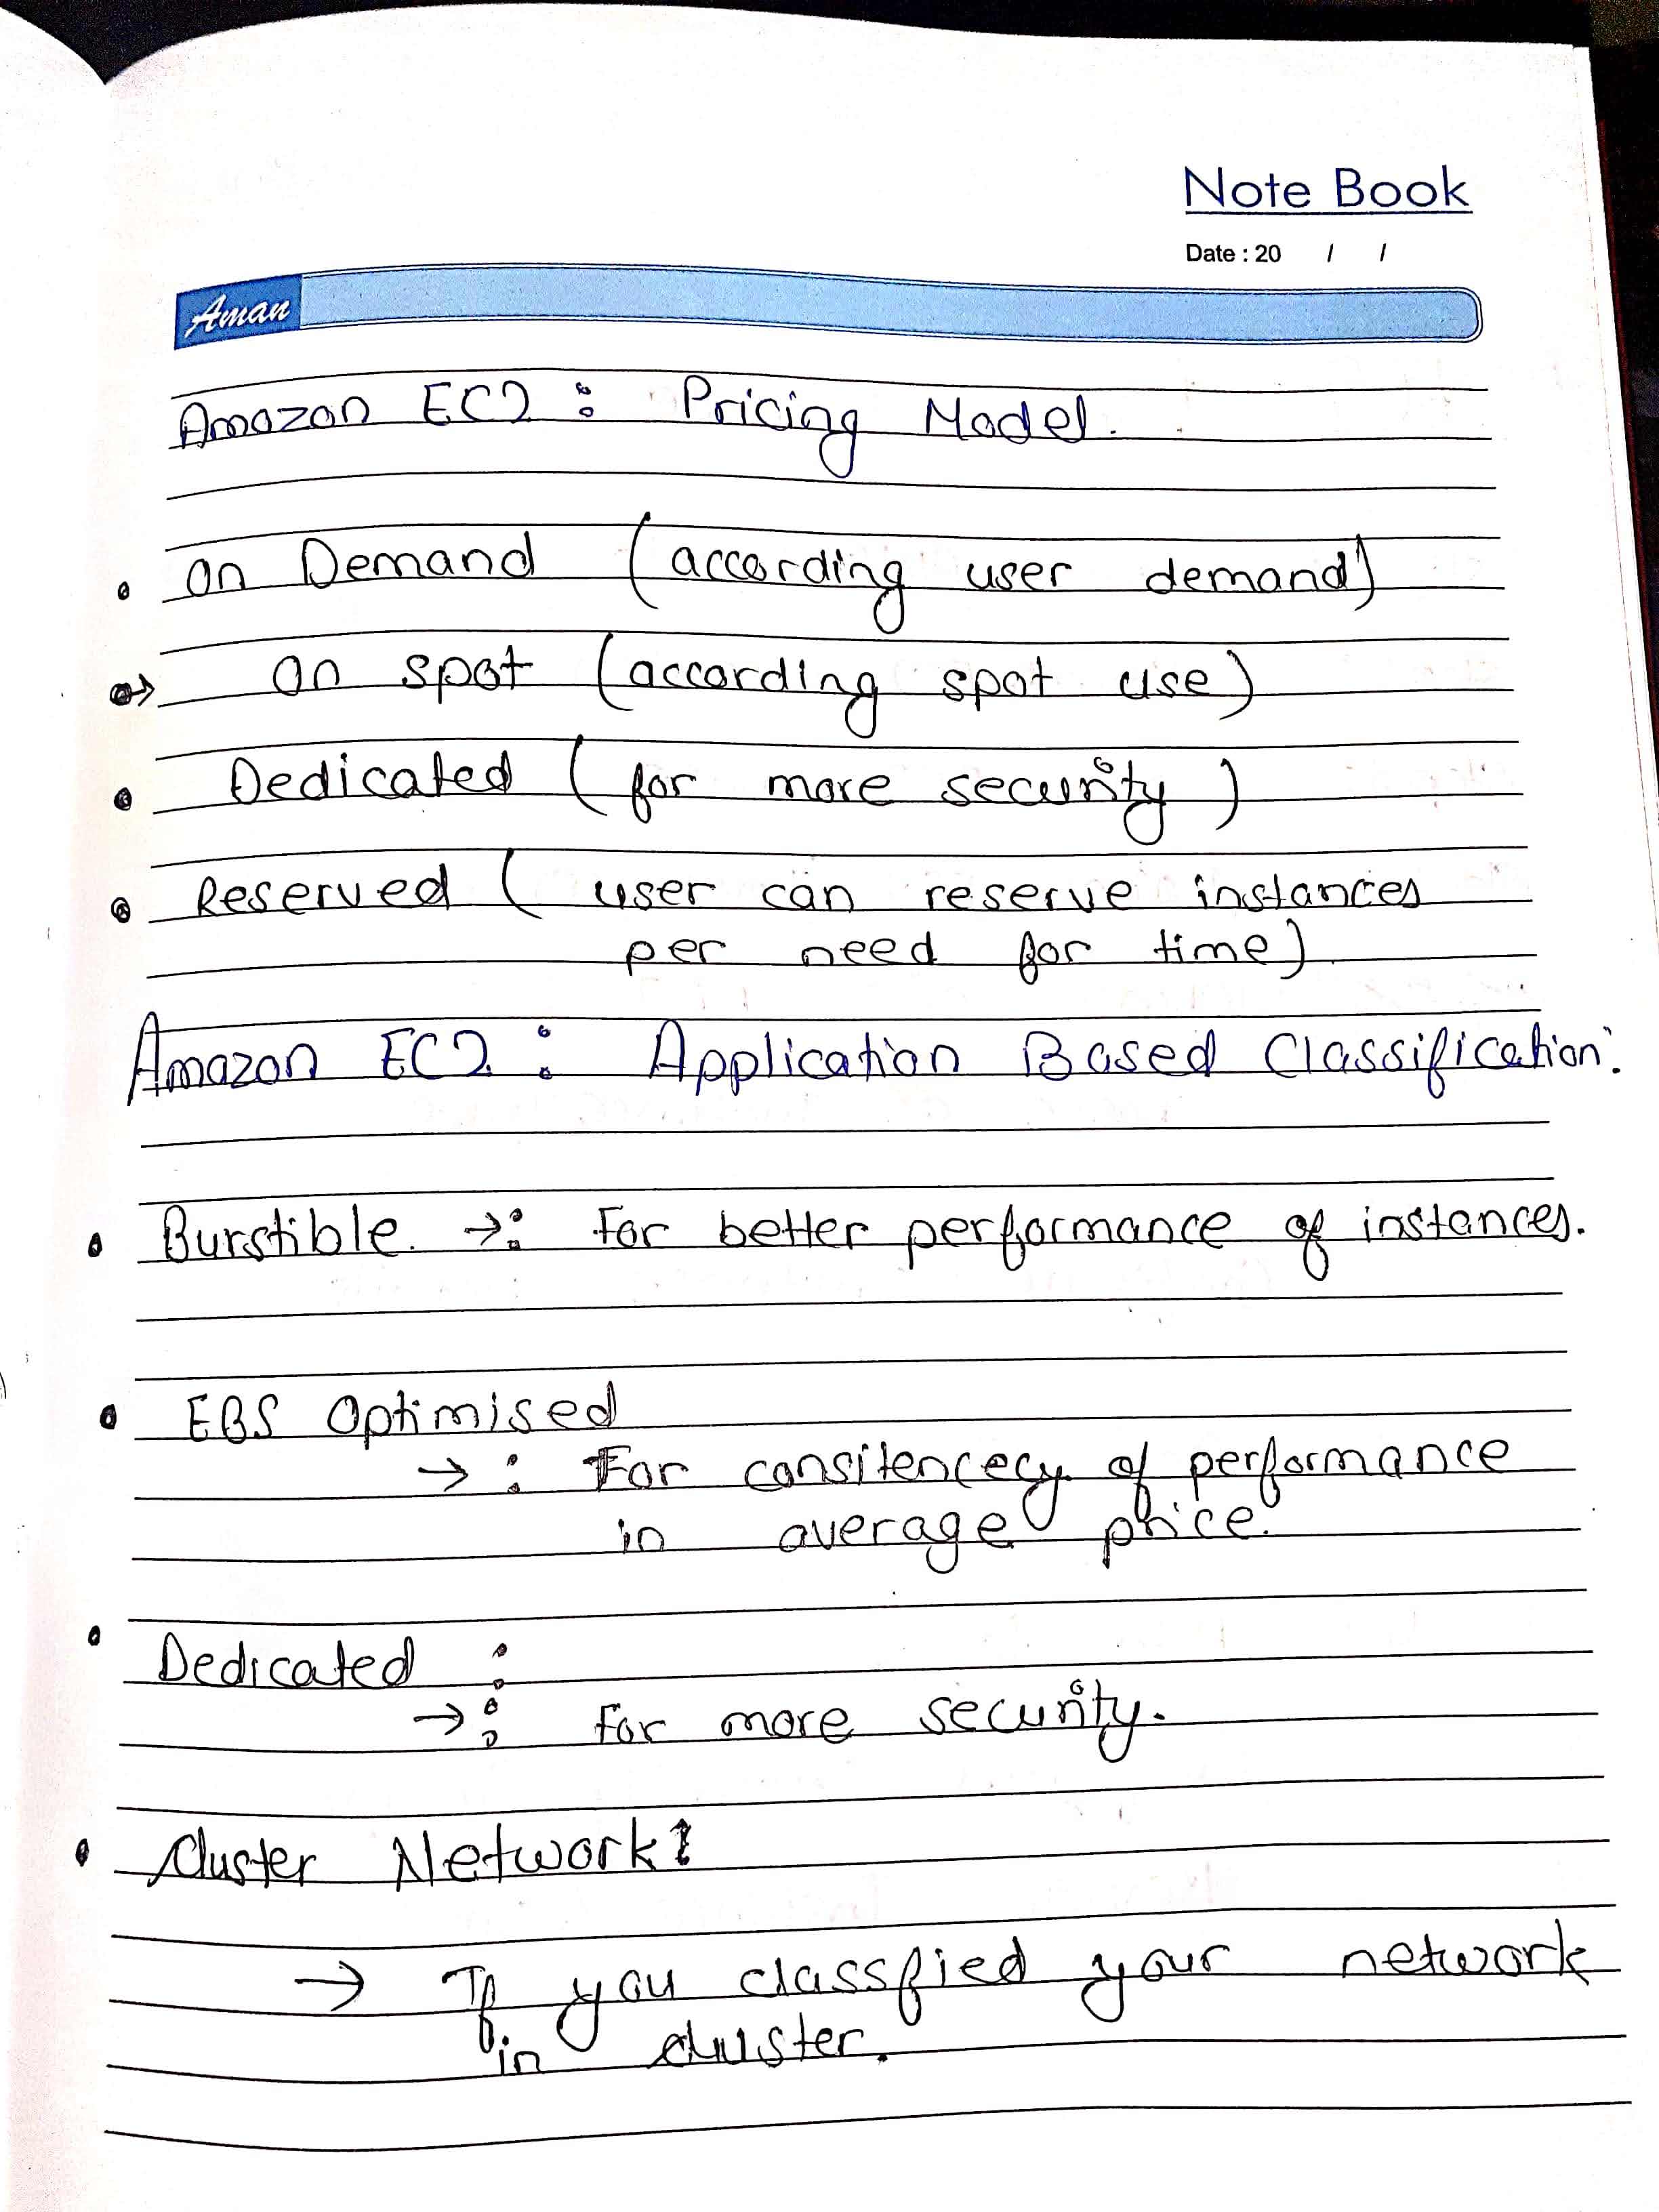 Note Book
Date : 20 / /
Aman
Amazon EC2 : Pricing Model.
• On Demand (according user demand)
→ On spot (according spot use)
• Dedicated ( for more security )
• Reserved ( user can reserve instances
per need for time)
Amazon EC2 : Application Based Classification:
• Burstible. →: For better performance of instances.
• EBS Optimised
→ : For consitencecy of performance
in average price.
• Dedicated :
→ : For more security.
• Cluster Network :
→ If you classfied your network
in cluster.